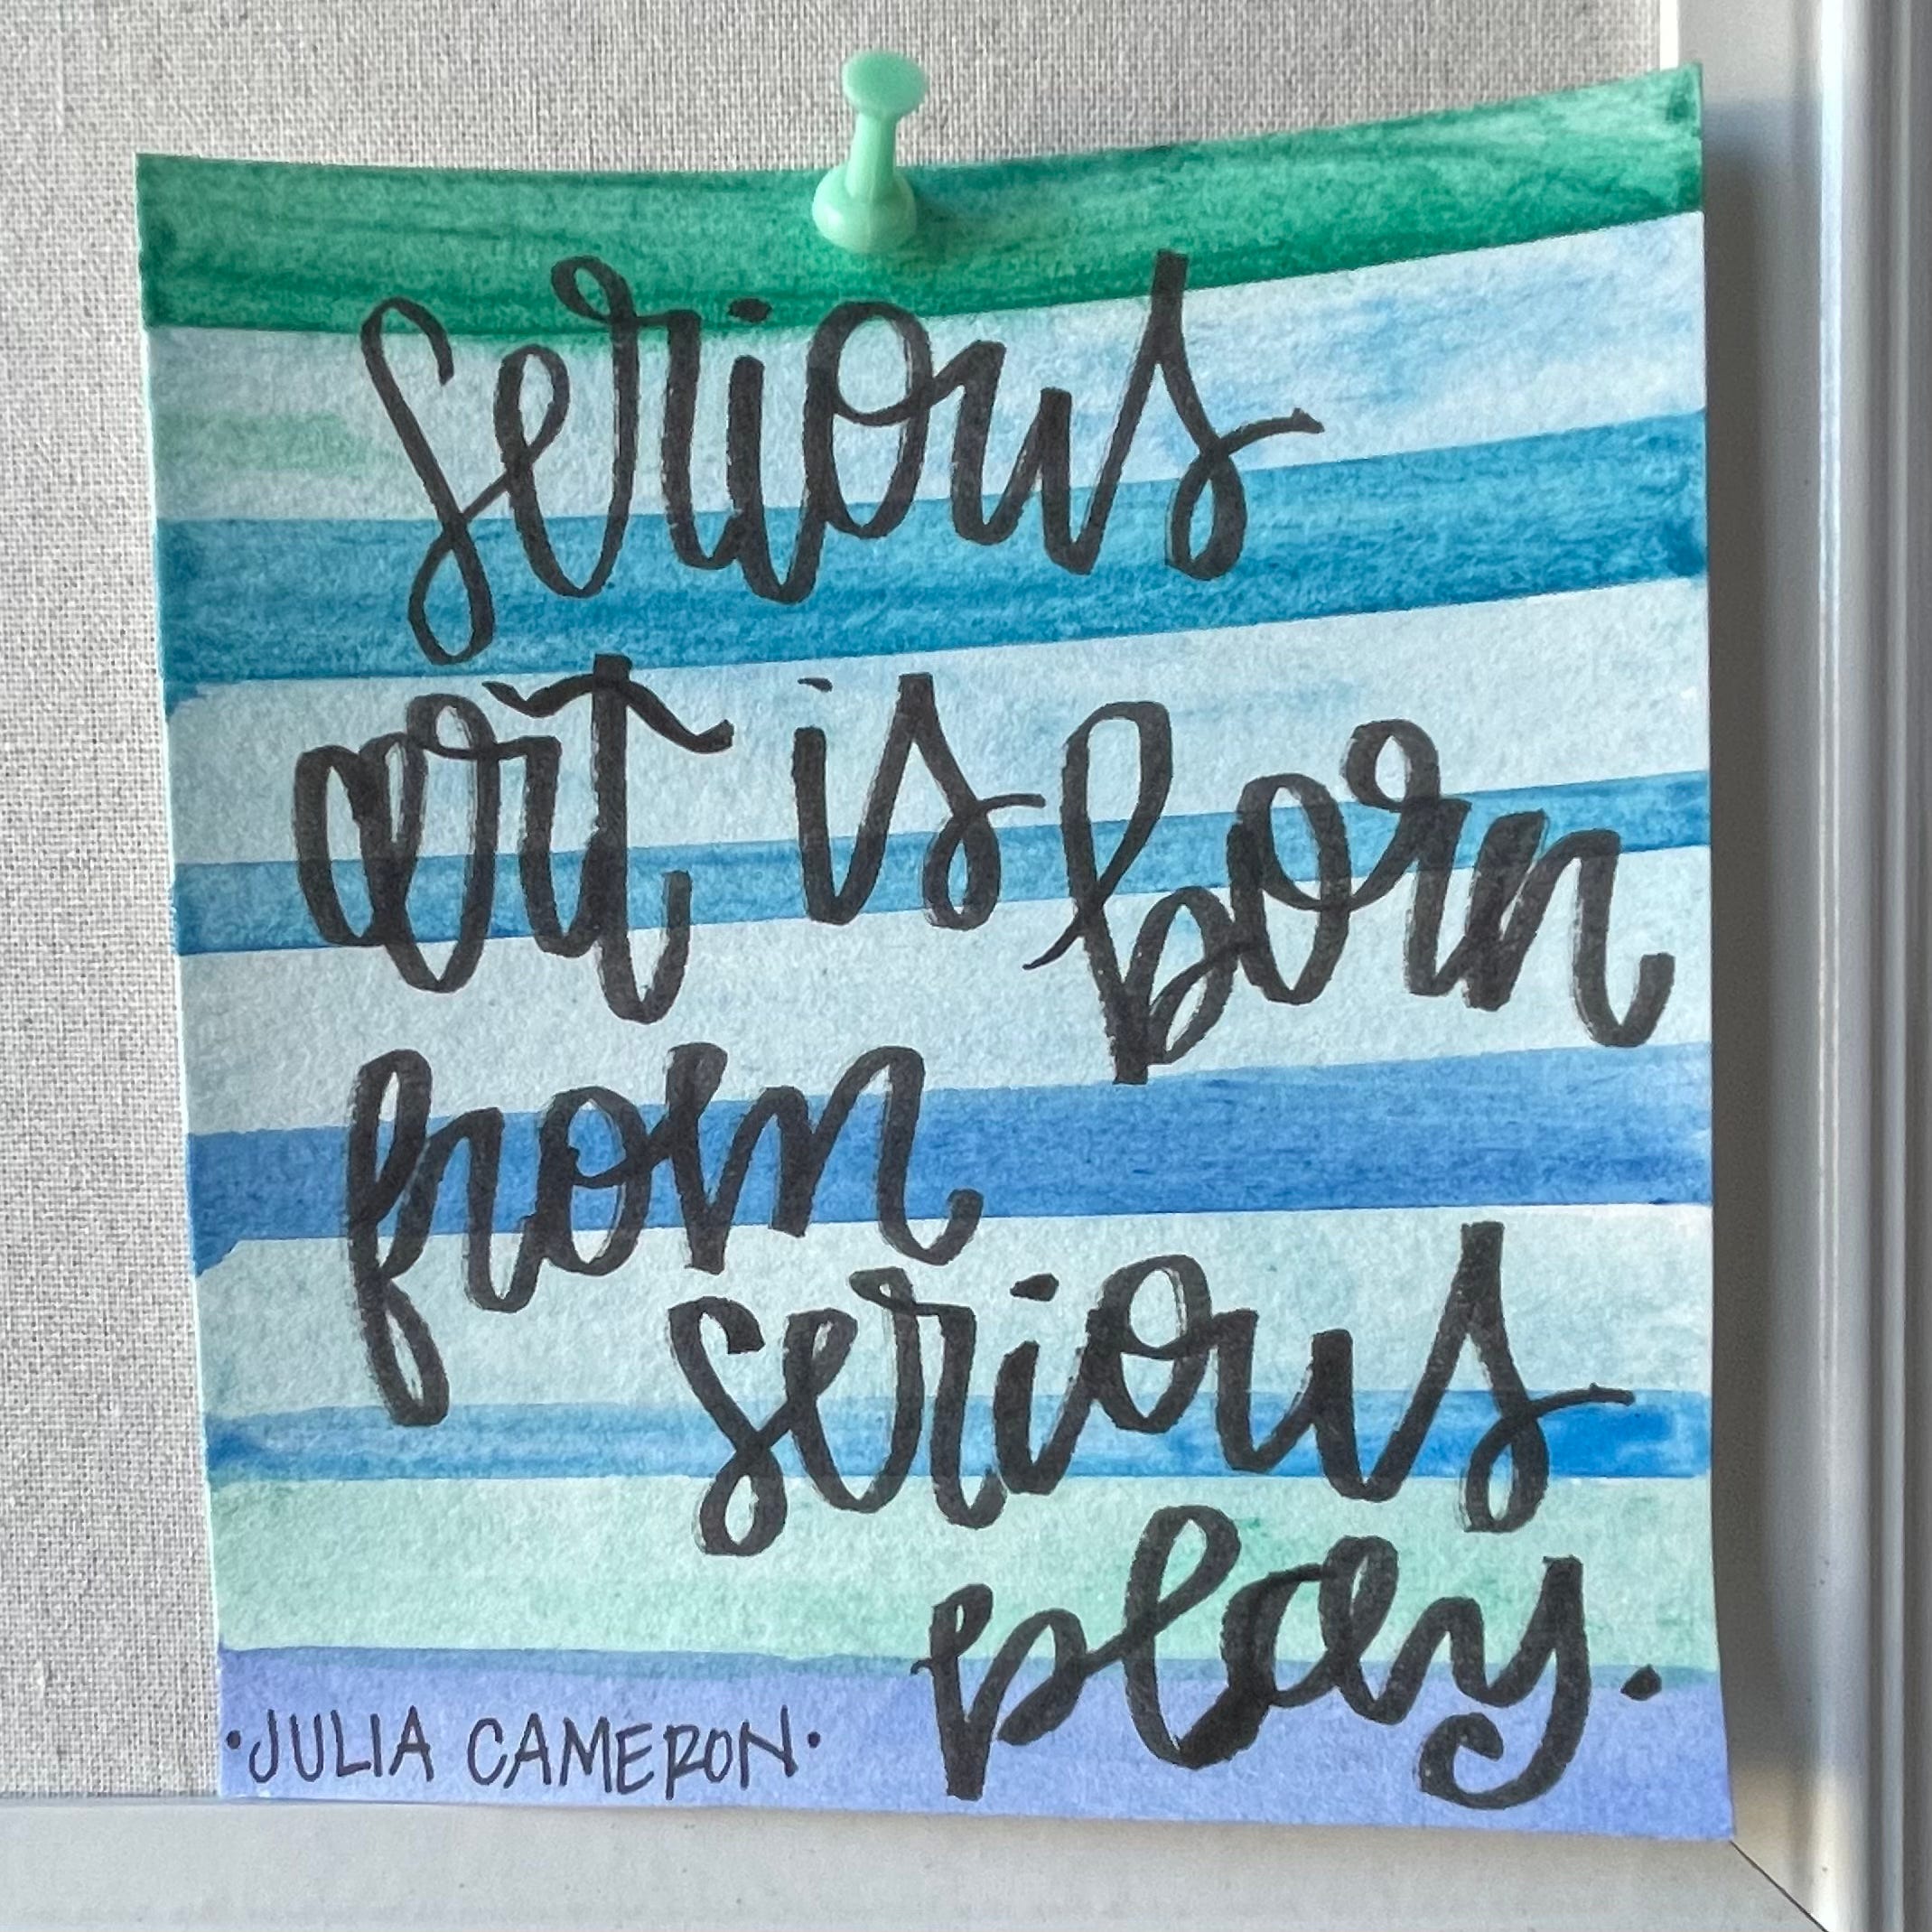 serious
art is born
from
serious
play.
·JULIA CAMERON·